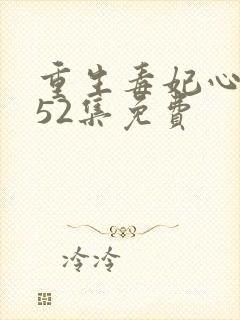 重生毒妃心
52集免費
冷冷